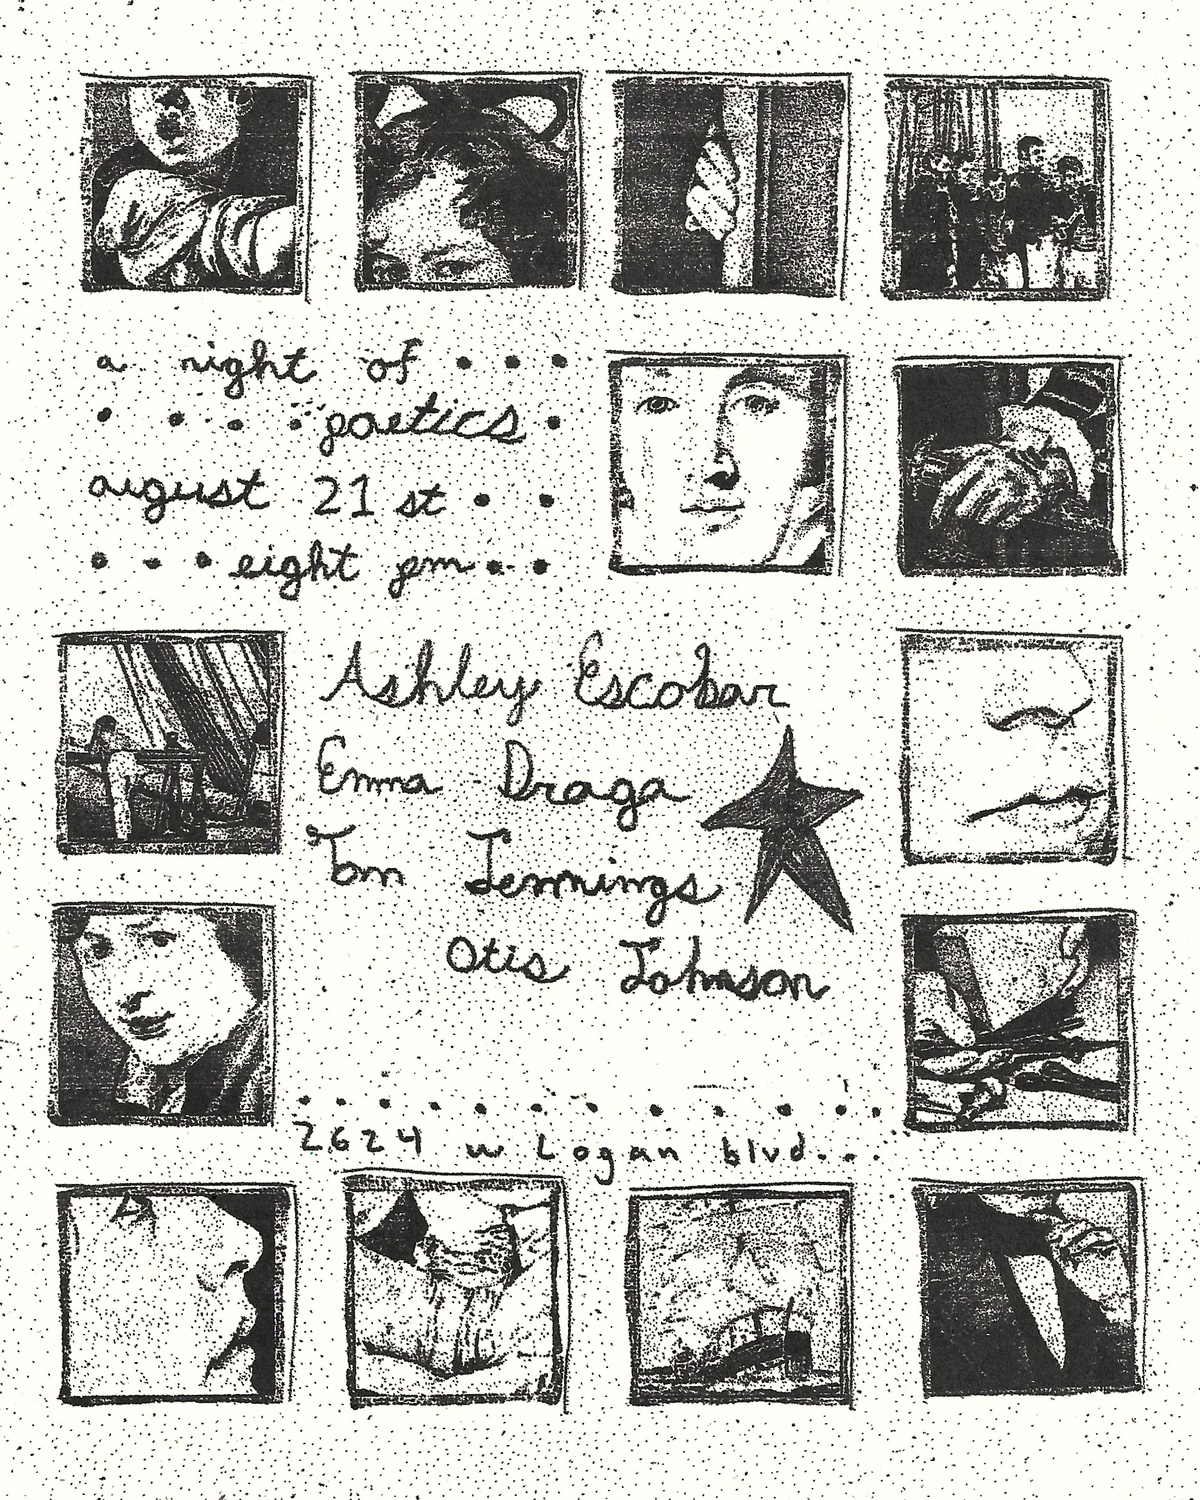 a night of . . .
. . . . poetics .
august 21st . .
. . . eight pm . .
Ashley Escobar
Emma Draga
Tom Jennings
Otis Johnson
. . . . . . . . . . . .
2624 w Logan blvd...